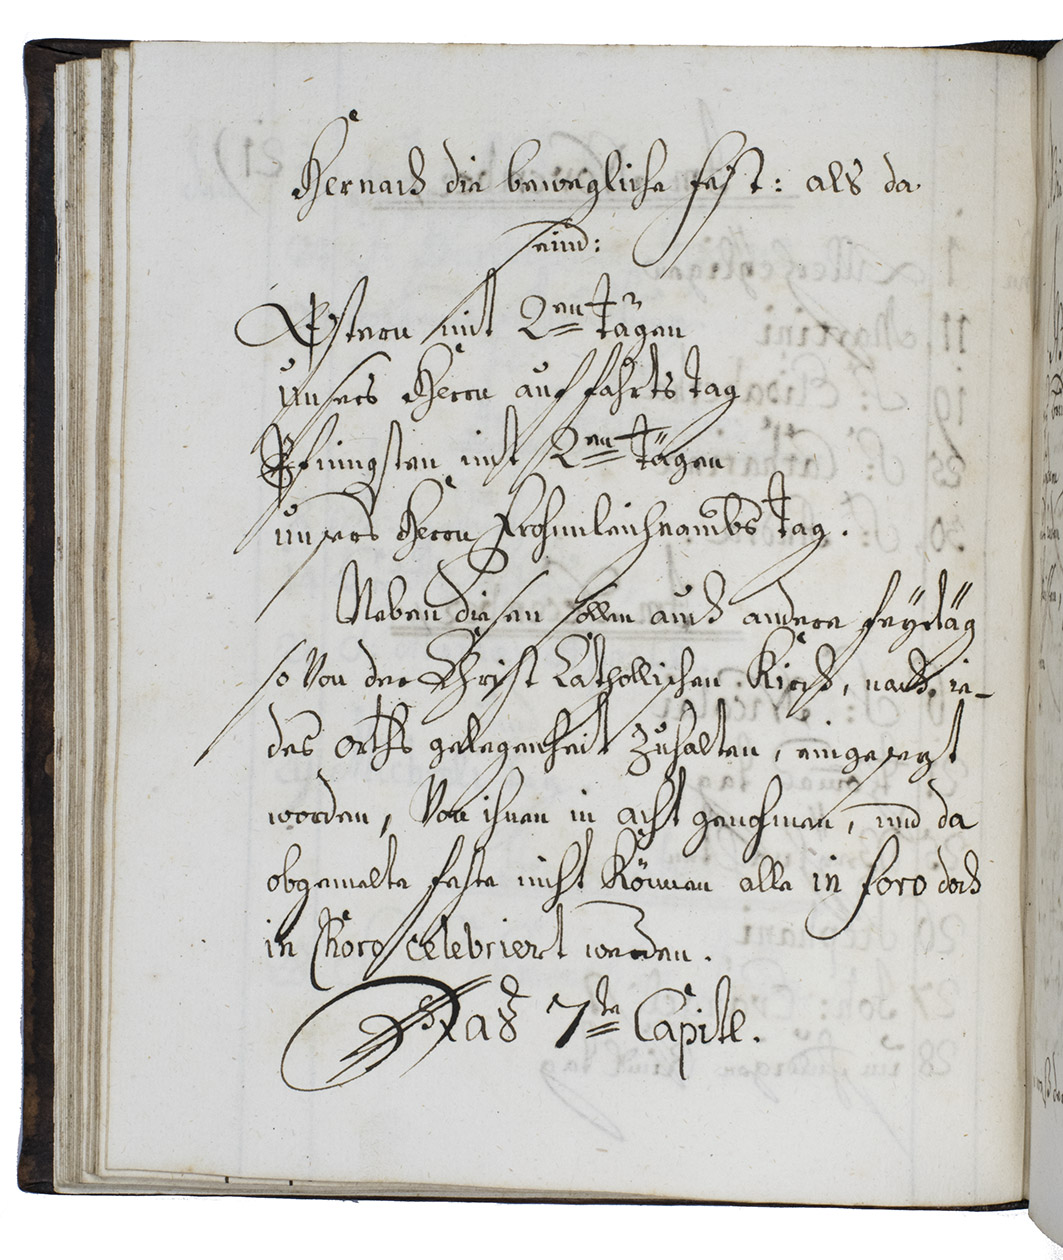 Hernach die bewegliche fest: als da
seind:
Ostern mit 2en tägen
unsers Herrn auffahrts tag
Pfningsten mit 2en tägen
unsers Herrn Frohnleichnambs tag.
Neben diesen sollen auch andere feÿrtäg
so Von der Christ Catholischen Kirch, nach ie-
des orths gelegenheit zuhalten, eingesezt
worden, Von ihnen in acht genohmen, und da
obgemelte feste nicht Können alle in foro doch
in Choro celebriert werden.
Das 7te Capitl.